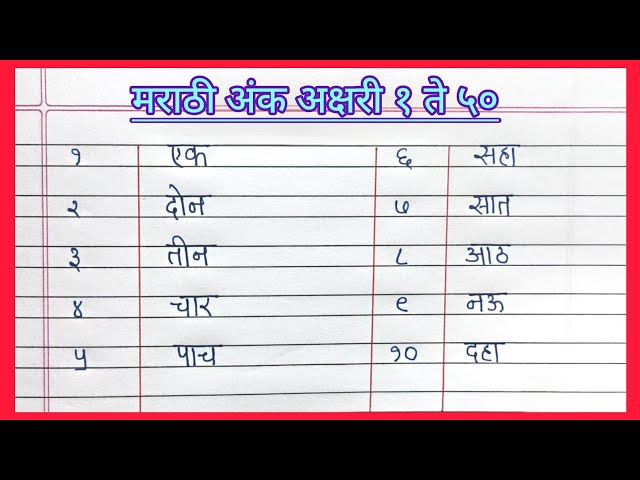 मराठी अंक अक्षरी १ ते ५०
१ एक ६ सहा
२ दोन ७ सात
३ तीन ८ आठ
४ चार ९ नऊ
५ पाच १० दहा